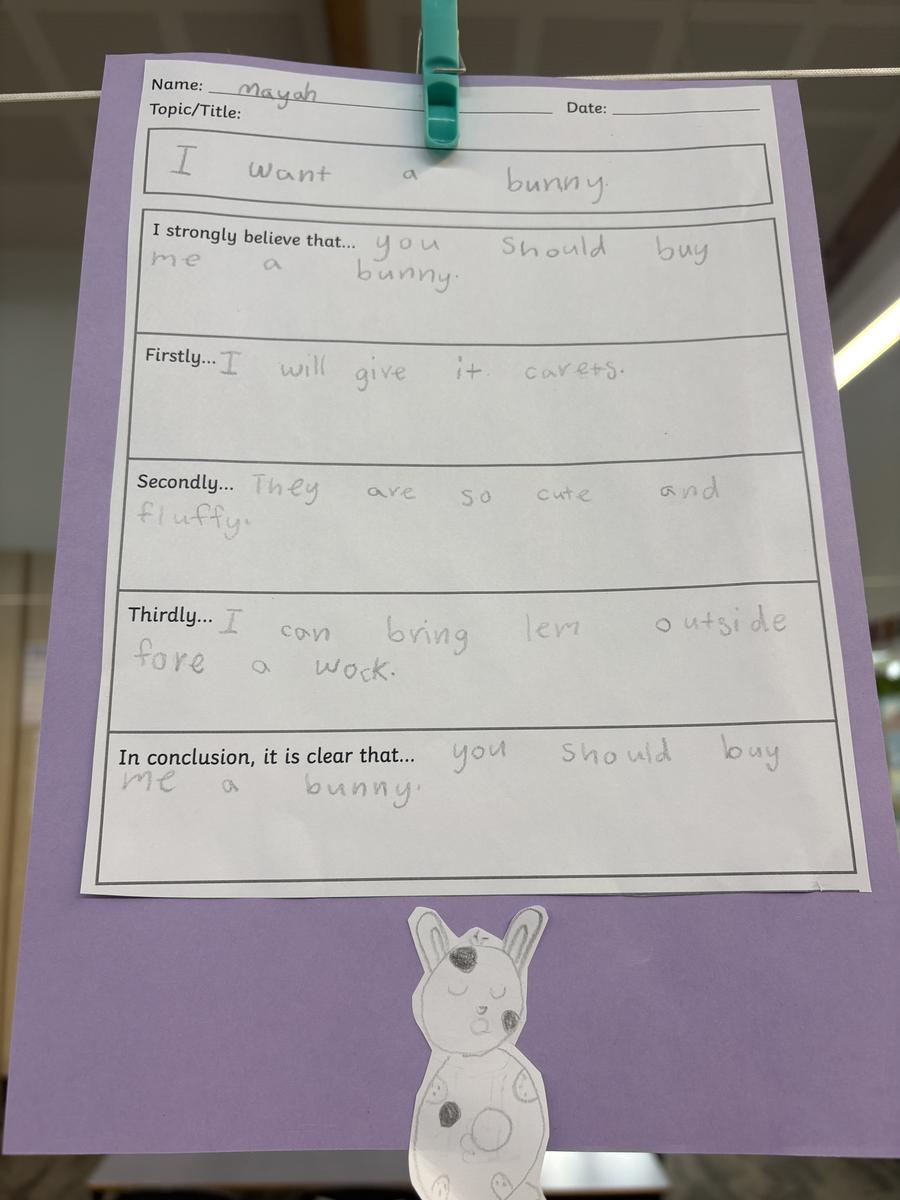 Name: mayah Date:
Topic/Title:
I want a bunny.
I strongly believe that... you should buy
me a bunny.
Firstly... I will give it. carets.
Secondly... They are so cute and
fluffy.
Thirdly... I can bring lem outside
fore a wock.
In conclusion, it is clear that... you should buy
me a bunny.